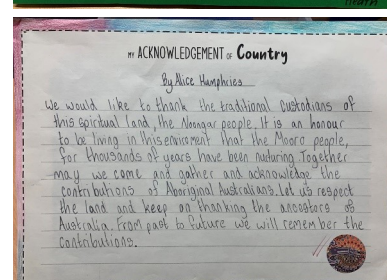 Health
MY ACKNOWLEDGEMENT OF Country
By Alice Humphries
We would like to thank the traditional Custodians of
this spiritual land, the Noongar people. It is an honour
to be living in this enviroment that the Mooro people,
for thousands of years have been nuturing. Together
may we come and gather and acknowledge the
contributions of Aboriginal Australians. Let us respect
the land and keep on thanking the ancestors of
Australia. From past to future we will remember the
contributions.